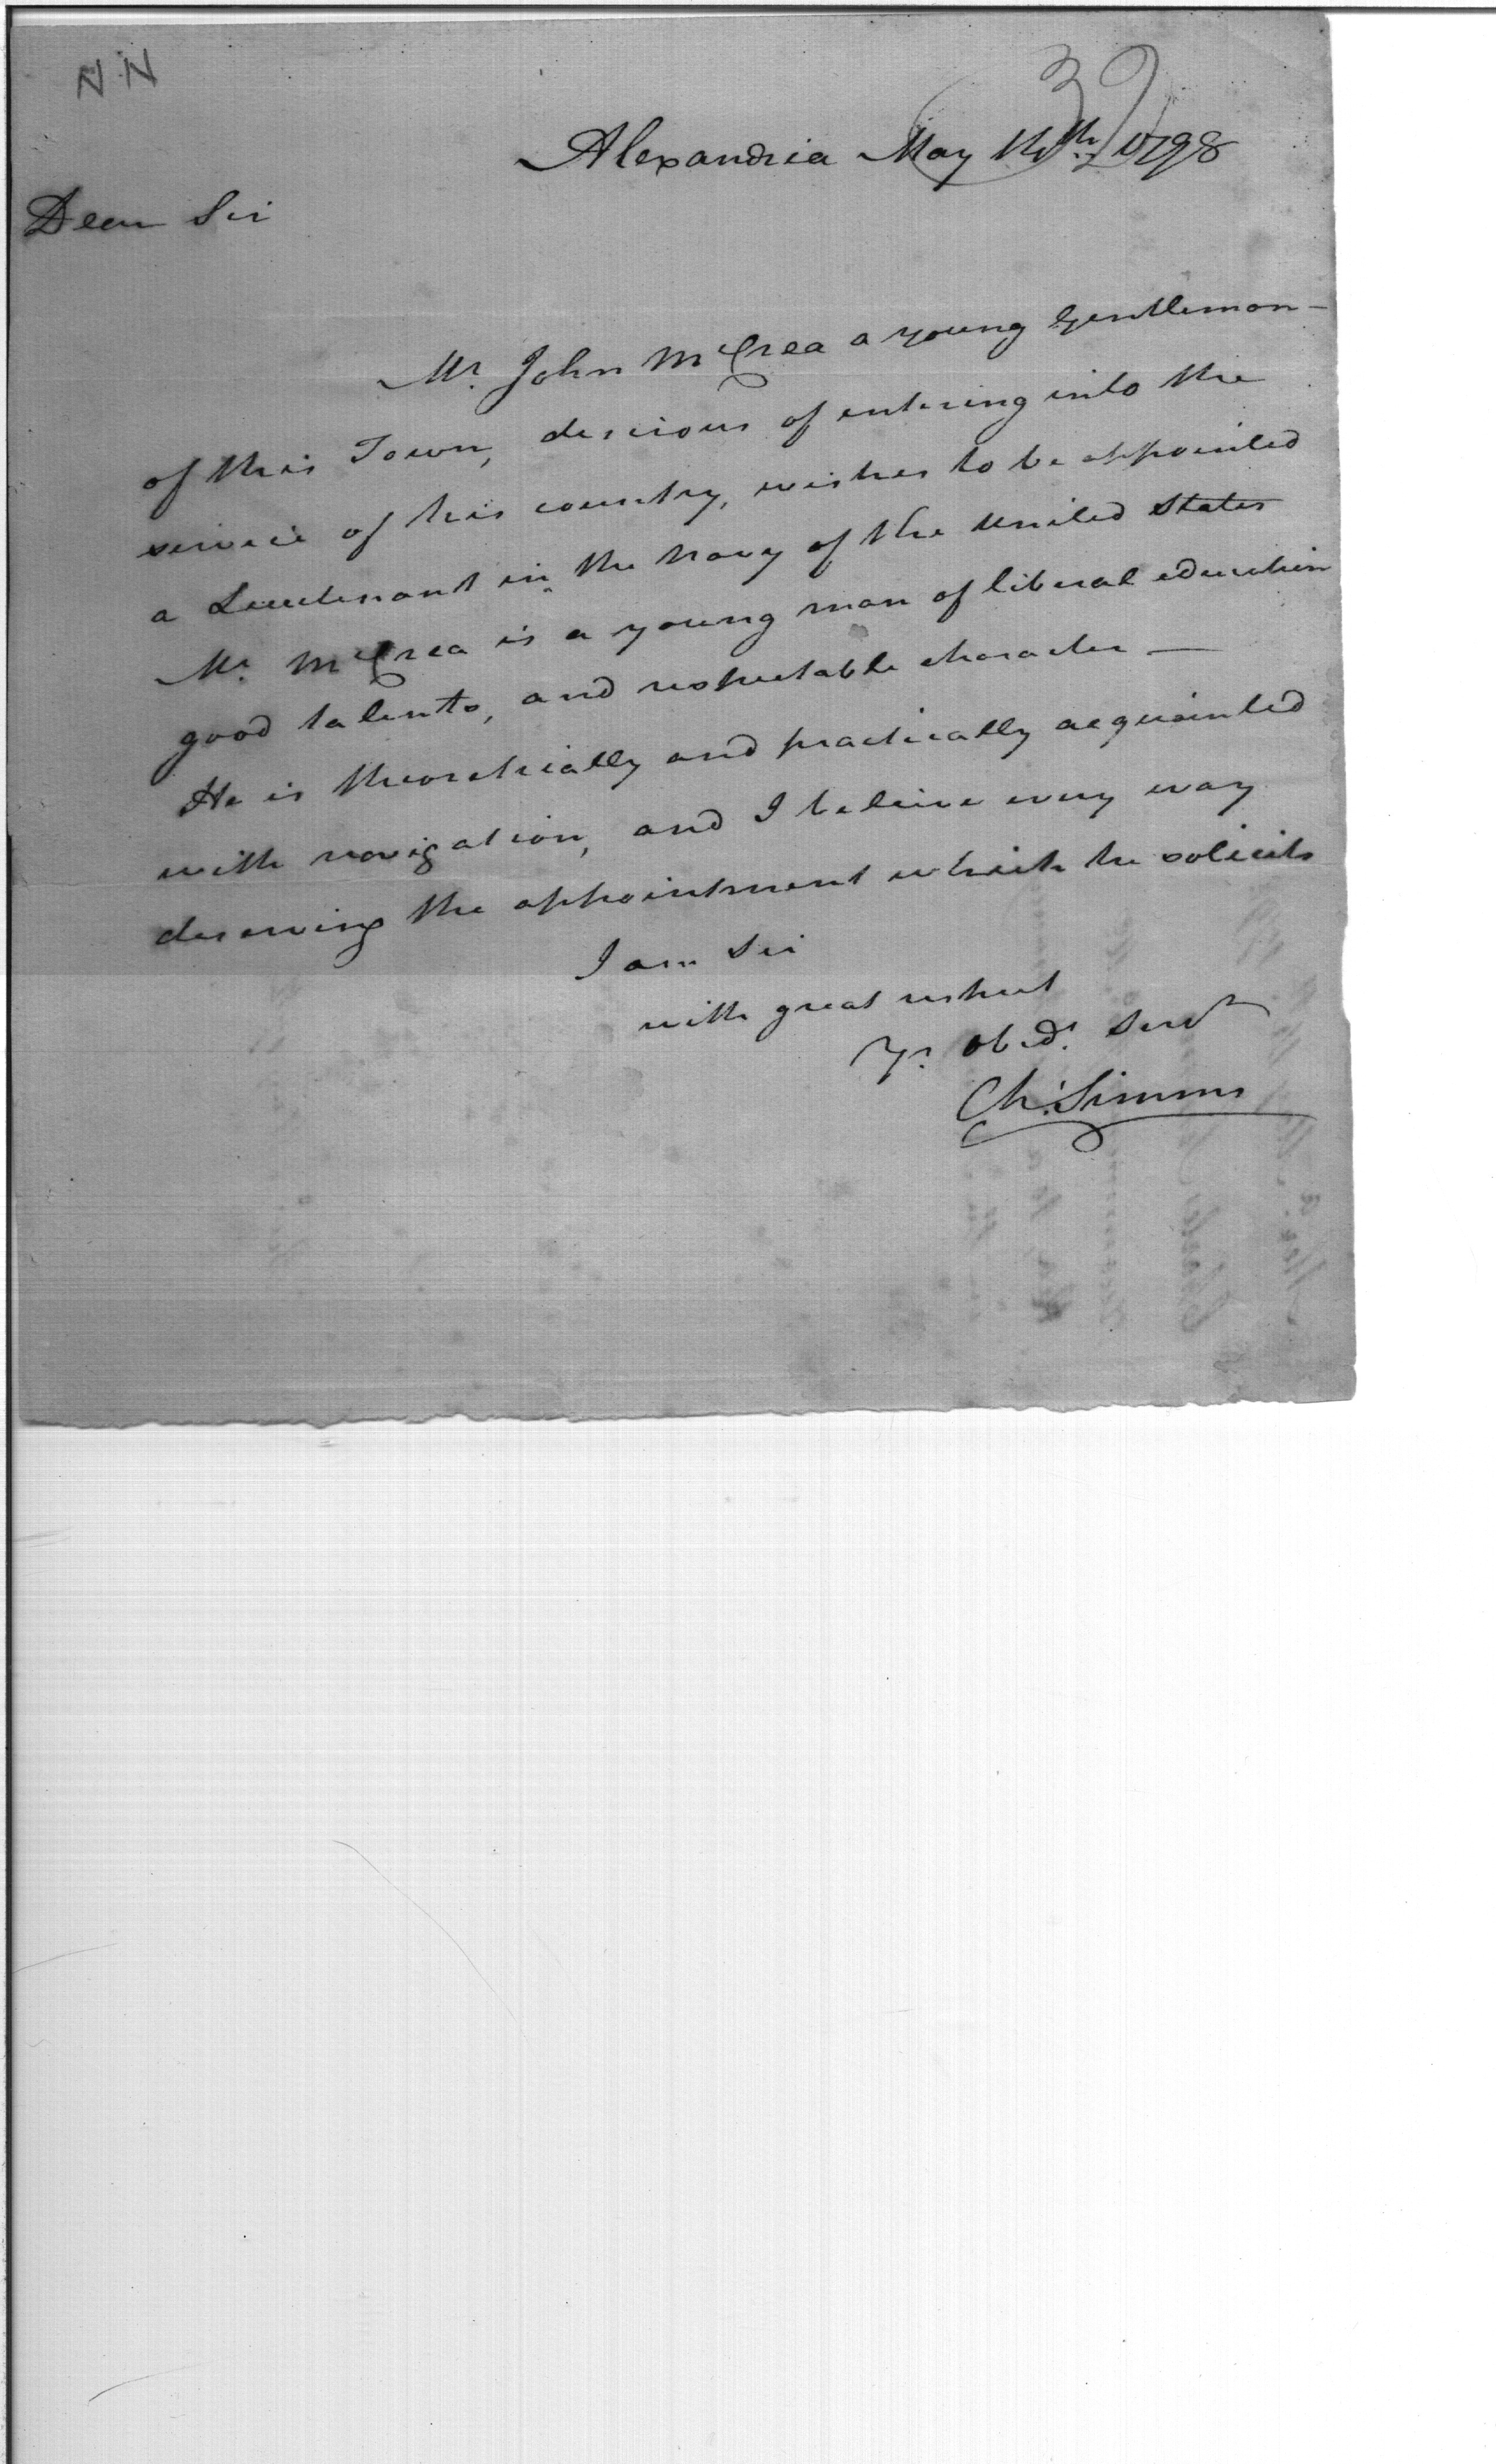 NN
32
Alexandria May 10th 1798
Dear Sir
Mr. John McCrea a young Gentleman –
of this Town, desirous of entering into the
service of his country, wishes to be appointed
a Lieutenant in the Navy of the United States
Mr. McCrea is a young man of liberal education
good talents, and respectable character —
He is theoretically and practically acquainted
with navigation, and I believe every way
deserving the appointment which he solicits
I am Sir
with great respect
Yr. obedt. Servt
Ch: Simms